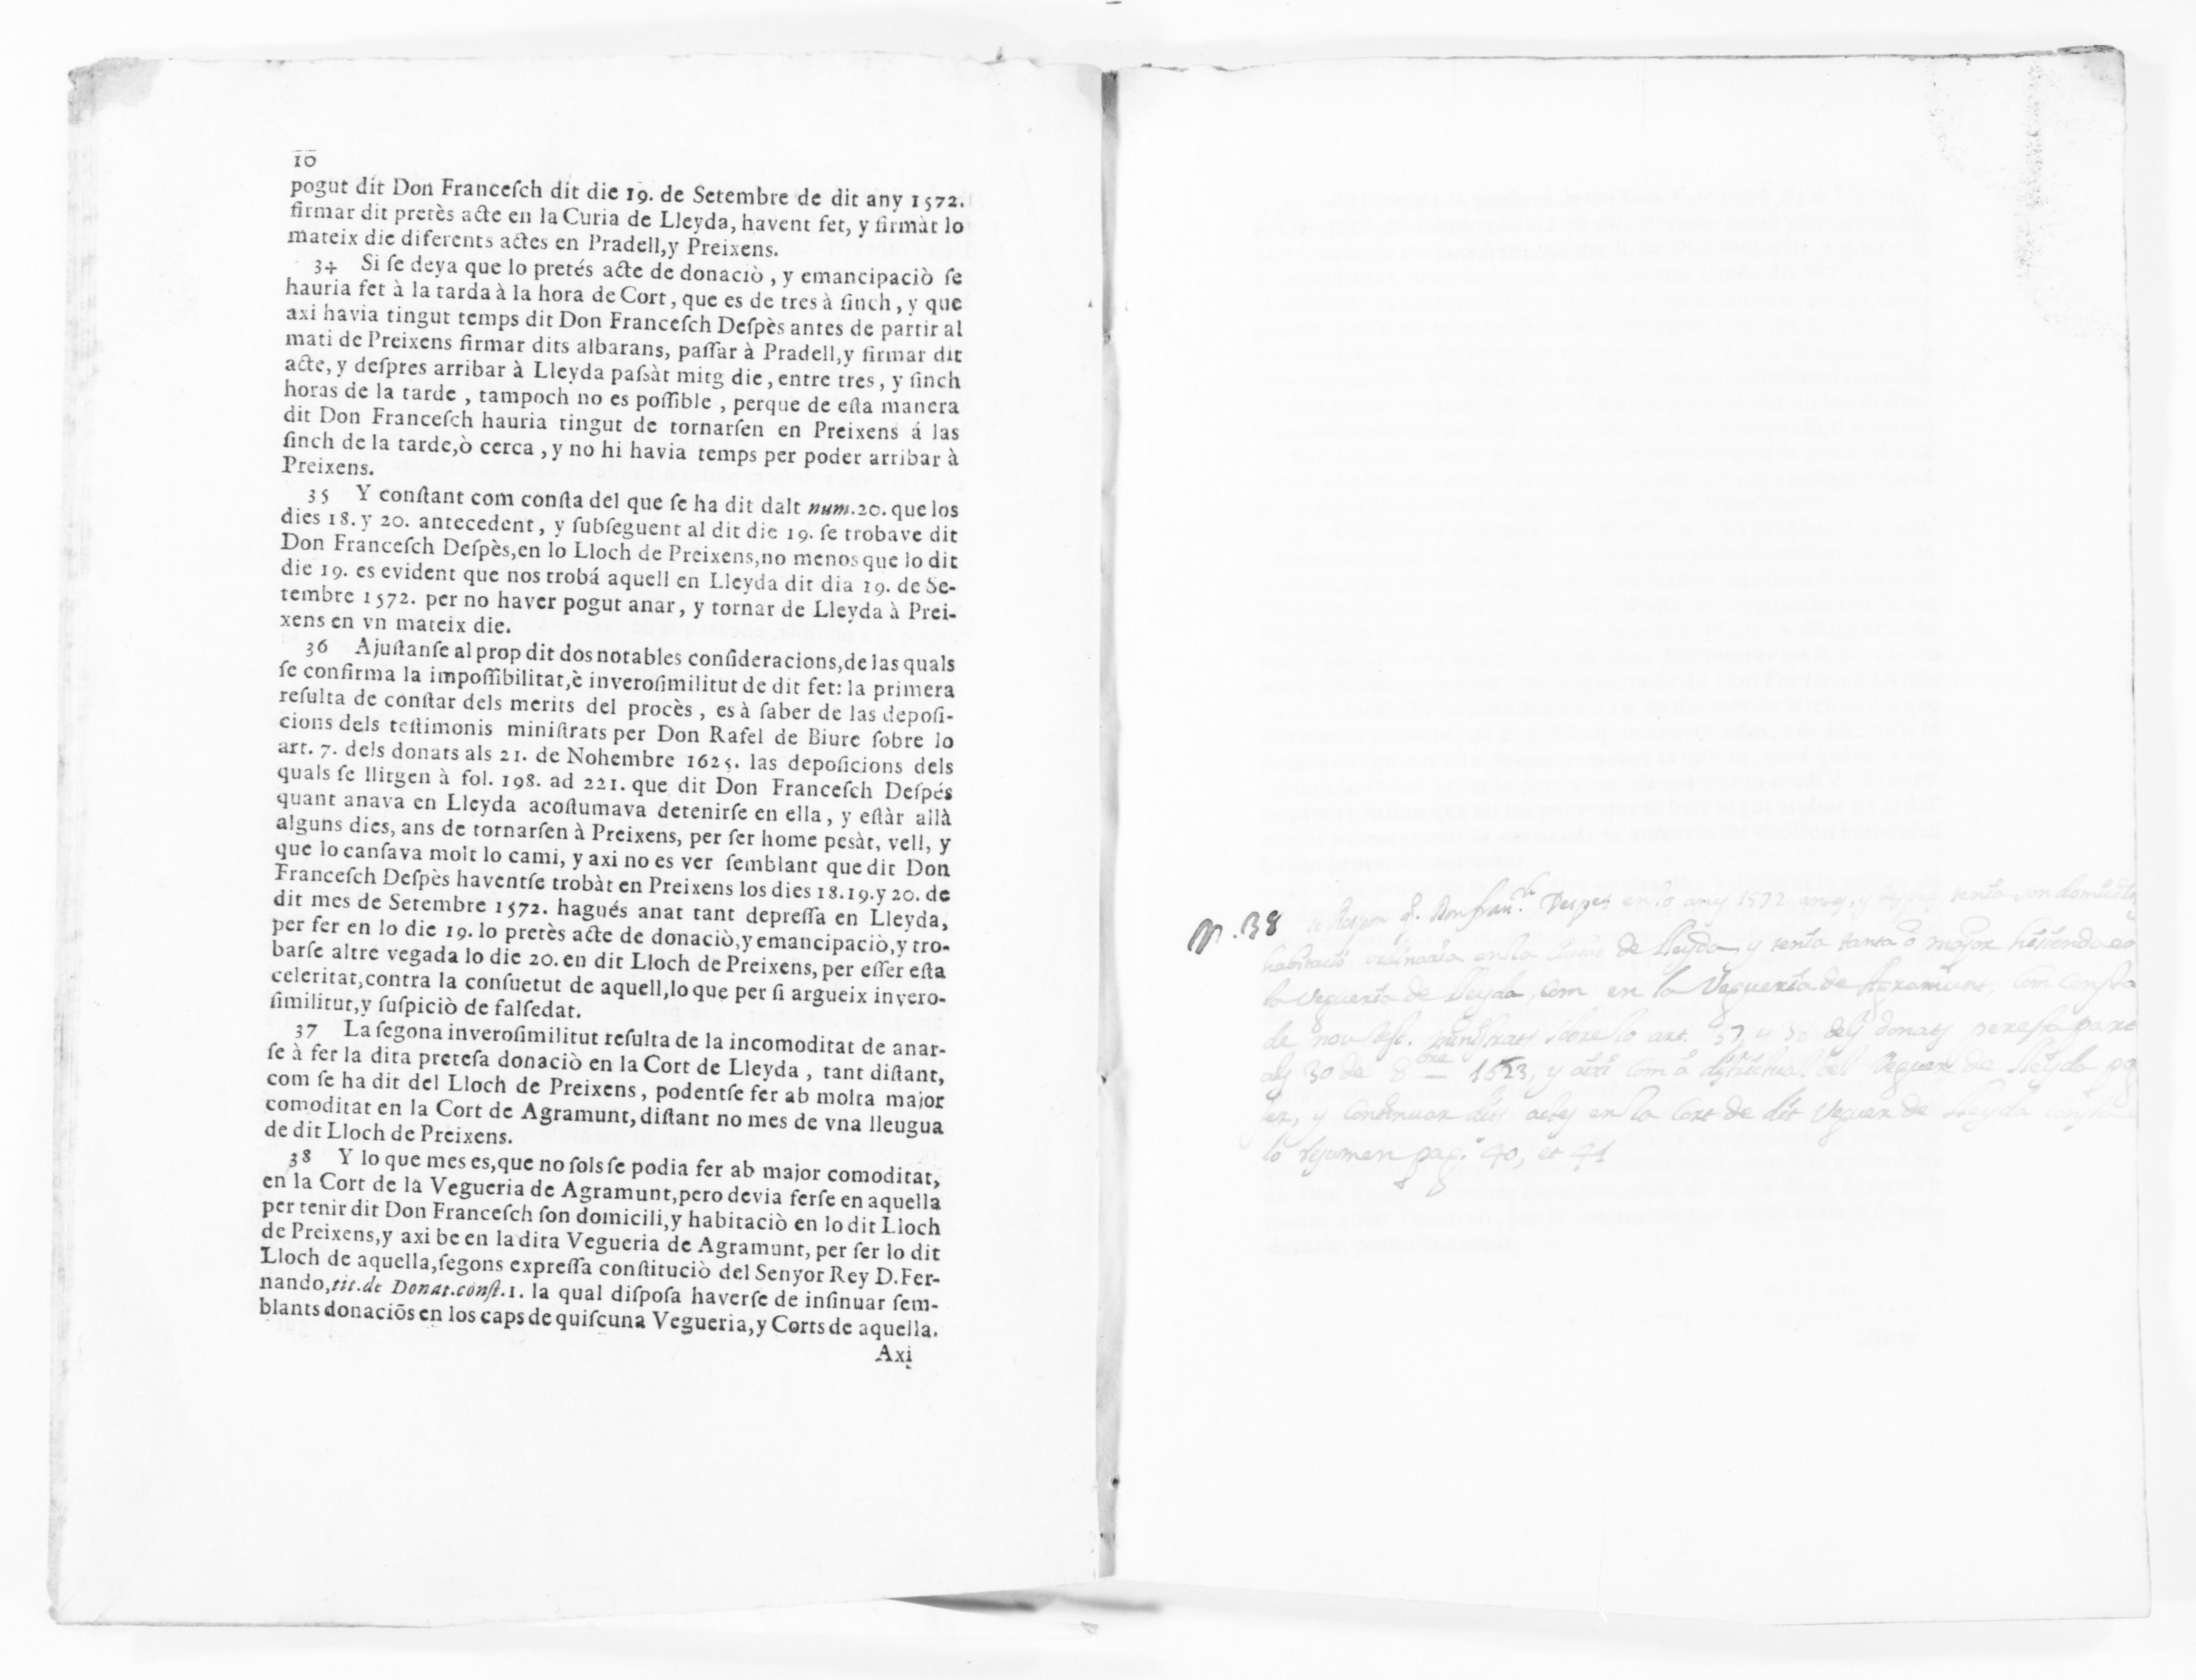 10
pogut dit Don Franceſch dit die 19. de Setembre de dit any 1572.
firmar dit pretès acte en la Curia de Lleyda, havent fet, y firmàt lo
mateix die diferents actes en Pradell,y Preixens.
34 Si ſe deya que lo pretés acte de donaciò, y emancipaciò ſe
hauria fet à la tarda à la hora de Cort, que es de tres à ſinch, y que
axi havia tingut temps dit Don Franceſch Deſpès antes de partir al
mati de Preixens firmar dits albarans, paſſar à Pradell,y firmar dit
acte, y deſpres arribar à Lleyda paſsàt mitg die, entre tres, y ſinch
horas de la tarde, tampoch no es poſſible, perque de eſta manera
dit Don Franceſch hauria tingut de tornarſen en Preixens á las
ſinch de la tarde,ò cerca, y no hi havia temps per poder arribar à
Preixens.
35 Y conſtant com conſta del que ſe ha dit dalt num.20. que los
dies 18. y 20. antecedent, y ſubſeguent al dit die 19. ſe trobave dit
Don Franceſch Deſpès,en lo Lloch de Preixens,no menos que lo dit
die 19. es evident que nos trobá aquell en Lleyda dit dia 19. de Se-
tembre 1572. per no haver pogut anar, y tornar de Lleyda à Prei-
xens en vn mateix die.
36 Ajuſtanſe al prop dit dos notables conſideracions,de las quals
ſe confirma la impoſſibilitat,è inveroſimilitut de dit fet: la primera
reſulta de conſtar dels merits del procès, es à ſaber de las depoſi-
cions dels teſtimonis miniſtrats per Don Rafel de Biure ſobre lo
art. 7. dels donats als 21. de Nohembre 1625. las depoſicions dels
quals ſe llitgen à fol. 198. ad 221. que dit Don Franceſch Deſpés
quant anava en Lleyda acoſtumava detenirſe en ella, y eſtàr allà
alguns dies, ans de tornarſen à Preixens, per ſer home pesàt, vell, y
que lo canſava molt lo cami, y axi no es ver ſemblant que dit Don
Franceſch Deſpès haventſe trobàt en Preixens los dies 18.19.y 20. de
dit mes de Setembre 1572. hagués anat tant depreſſa en Lleyda,
per fer en lo die 19. lo pretès acte de donaciò,y emancipaciò,y tro-
barſe altre vegada lo die 20. en dit Lloch de Preixens, per eſſer eſta
celeritat,contra la conſuetut de aquell,lo que per ſi argueix invero-
ſimilitut,y ſuſpiciò de falſedat.
37 La ſegona inveroſimilitut reſulta de la incomoditat de anar-
ſe à fer la dita preteſa donaciò en la Cort de Lleyda, tant diſtant,
com ſe ha dit del Lloch de Preixens, podentſe fer ab molta major
comoditat en la Cort de Agramunt, diſtant no mes de vna lleugua
de dit Lloch de Preixens.
38 Y lo que mes es,que no ſols ſe podia fer ab major comoditat,
en la Cort de la Vegueria de Agramunt,pero devia ferſe en aquella
per tenir dit Don Franceſch ſon domicili,y habitaciò en lo dit Lloch
de Preixens,y axi be en la dita Vegueria de Agramunt, per ſer lo dit
Lloch de aquella,ſegons expreſſa conſtituciò del Senyor Rey D.Fer-
nando,tit.de Donat.conſt.1. la qual diſpoſa haverſe de inſinuar ſem-
blants donaciõs en los caps de quiſcuna Vegueria,y Corts de aquella.
Axi
n. 38 Don Fran.ch Despes en lo any 1572 tenia son
habitació ordinaria en la Ciutat de Lleyda, y tenia tanta o major
la Vegueria de Lleyda, com en la Vegueria de Agramunt, com consta
de nou sobre lo art. 37 y 38 dels donats part
als 30 de 8bre 1623, y axi com a del Veguer de Lleyda
fer, y continuar dits actes en la Cort de dit Veguer de Lleyda
lo resumen pag. 40, et 41